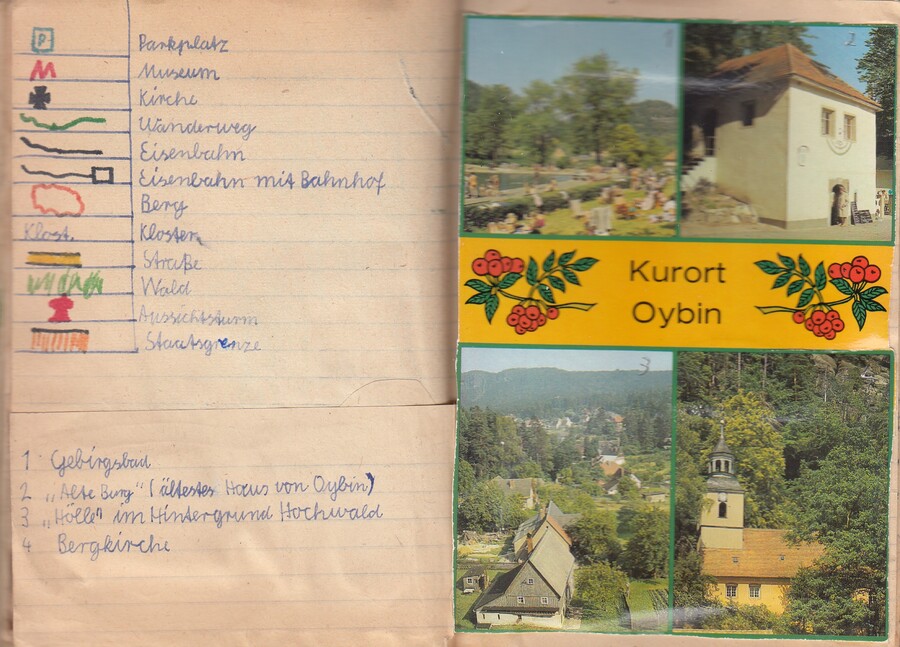 P Parkplatz
M Museum
Kirche
Wanderweg
Eisenbahn
Eisenbahn mit Bahnhof
Berg
Klost. Kloster
Straße
Wald
Aussichtsturm
Staatsgrenze
1 Gebirgsbad
2 „Alte Burg" (ältestes Haus von Oybin)
3 „Hölle" im Hintergrund Hochwald
4 Bergkirche
1
2
Kurort
Oybin
3